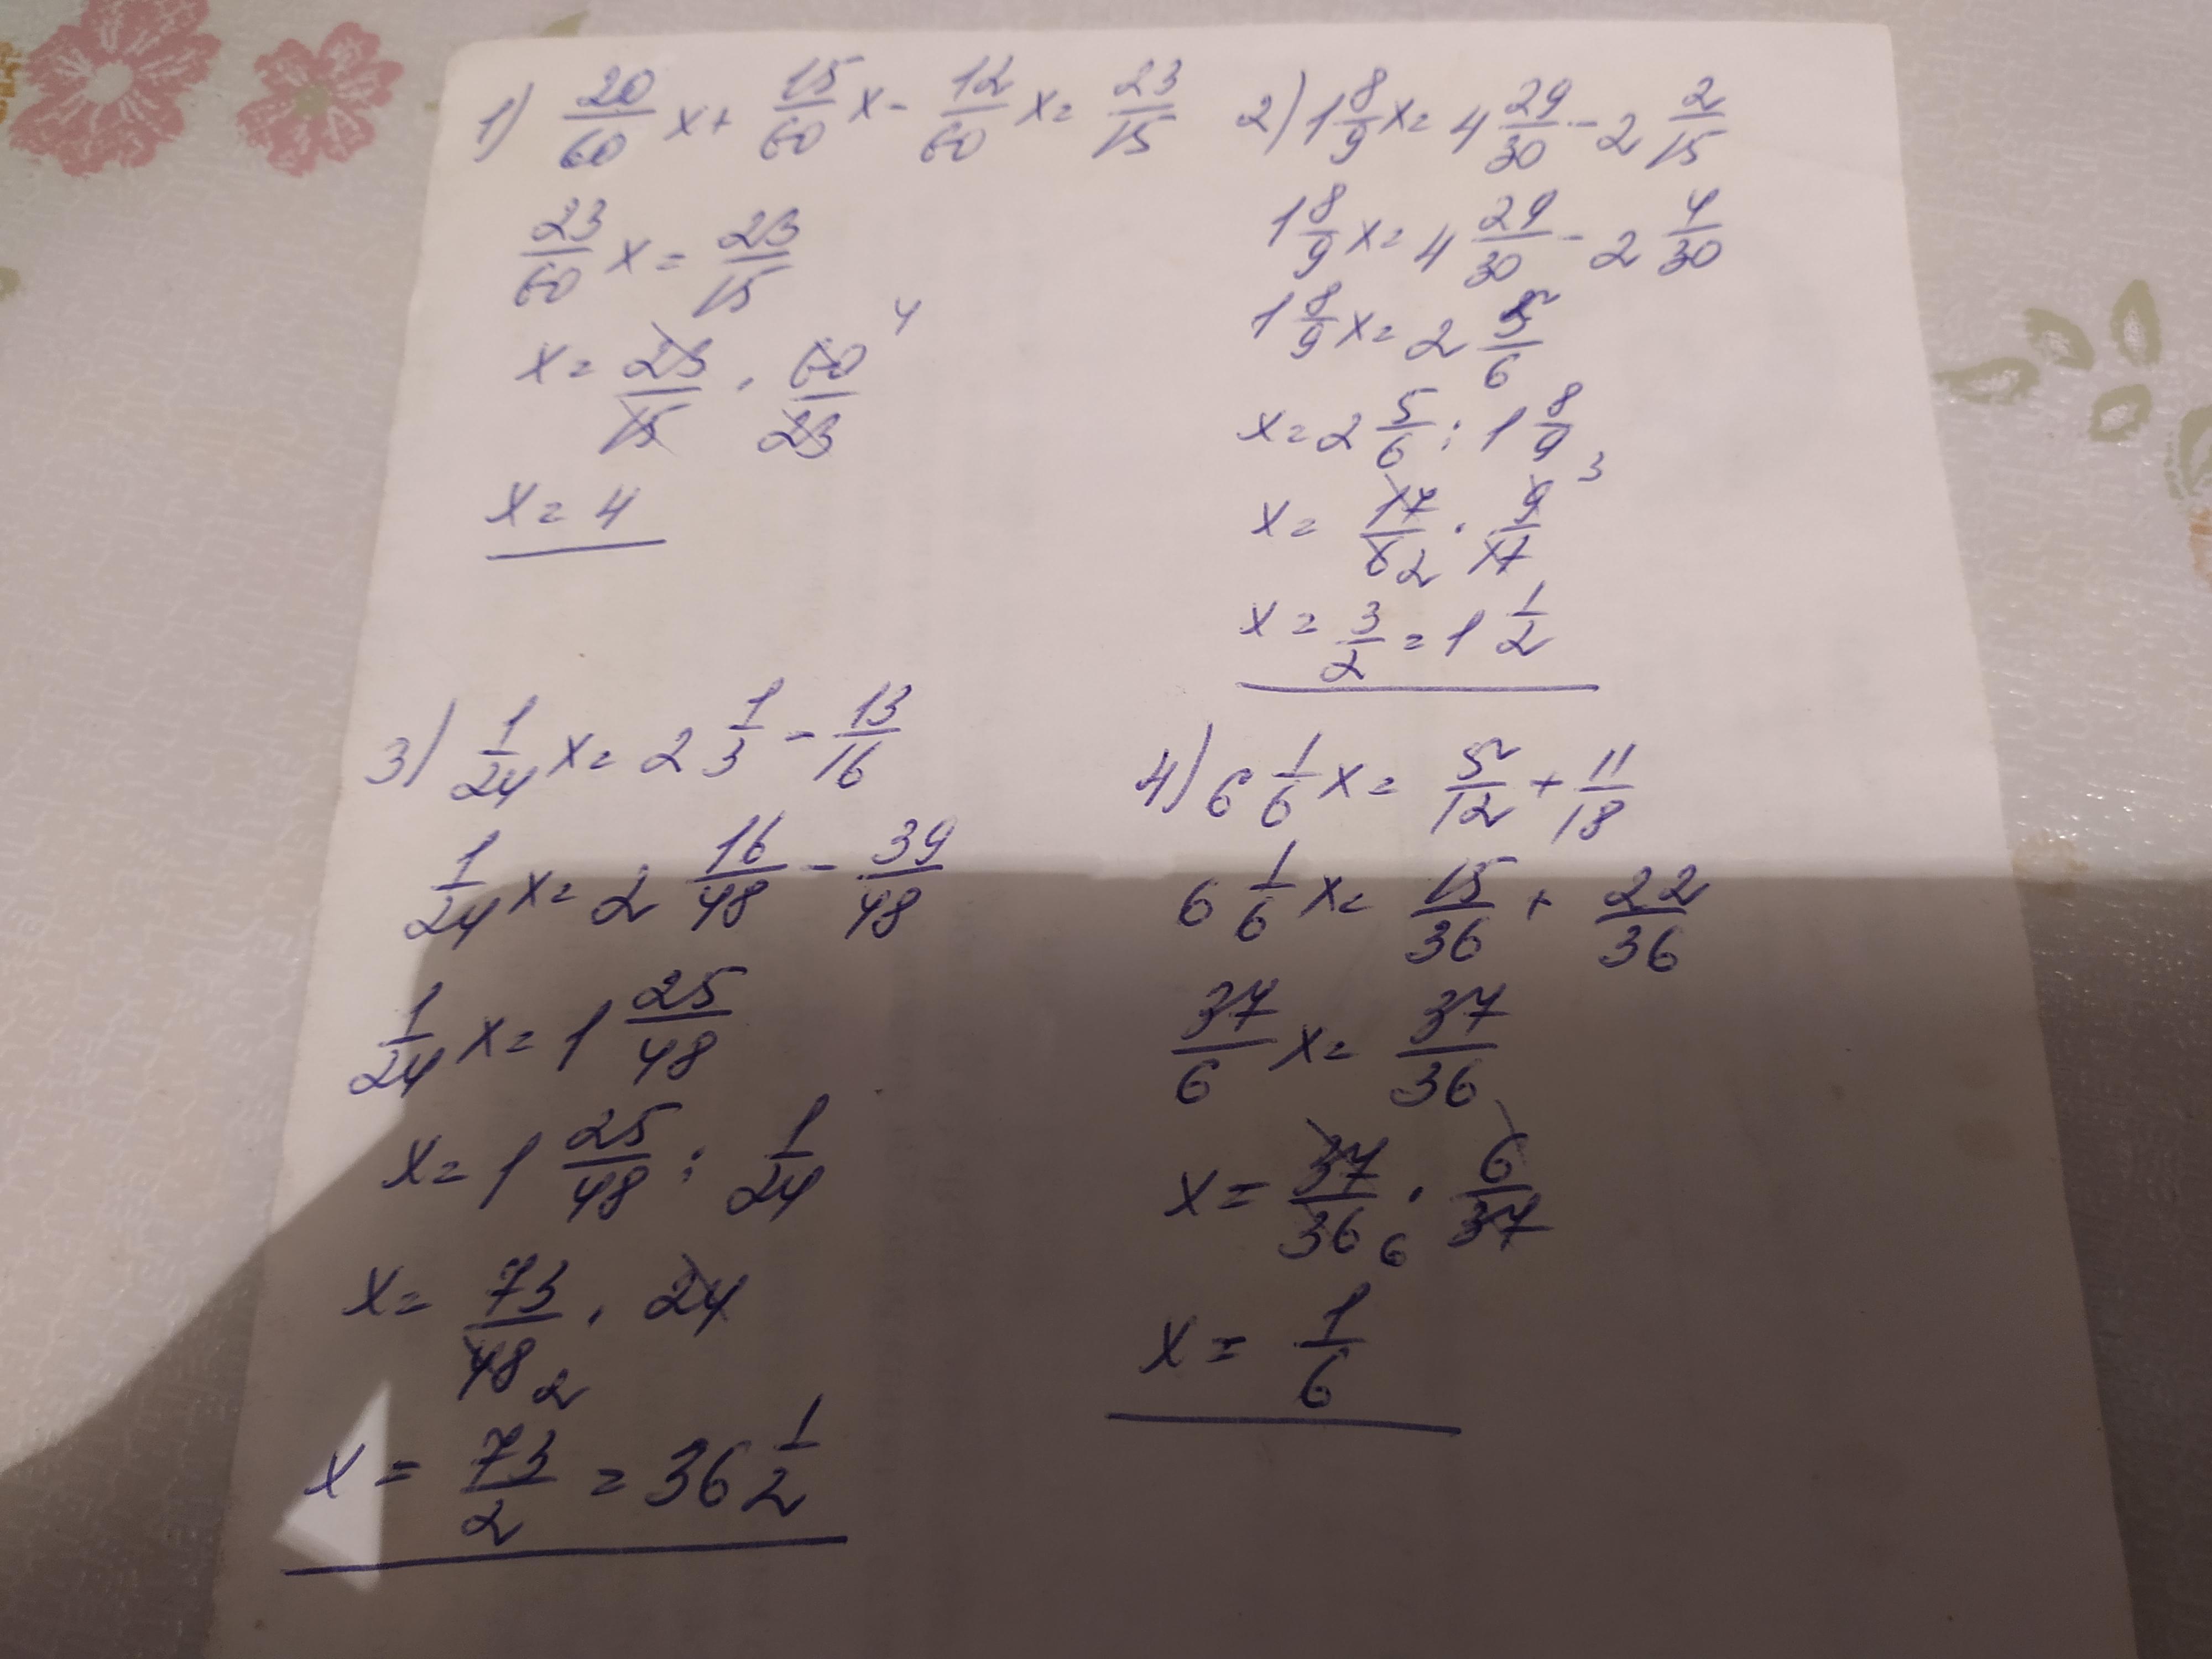 1) 20/60 x + 15/60 x - 12/60 x = 23/15
23/60 x = 23/15
x = 23/15 · 60/23 4
x = 4
2) 1 8/9 x = 4 29/30 - 2 2/15
1 8/9 x = 4 29/30 - 2 4/30
1 8/9 x = 2 5/6
x = 2 5/6 : 1 8/9
x = 17/6 2 · 9/17 3
x = 3/2 = 1 1/2
3) 1/24 x = 2 1/3 - 13/16
1/24 x = 2 16/48 - 39/48
1/24 x = 1 25/48
x = 1 25/48 : 1/24
x = 73/48 2 · 24
x = 73/2 = 36 1/2
4) 6 1/6 x = 5/12 + 11/18
6 1/6 x = 15/36 + 22/36
37/6 x = 37/36
x = 37/36 6 · 6/37
x = 1/6